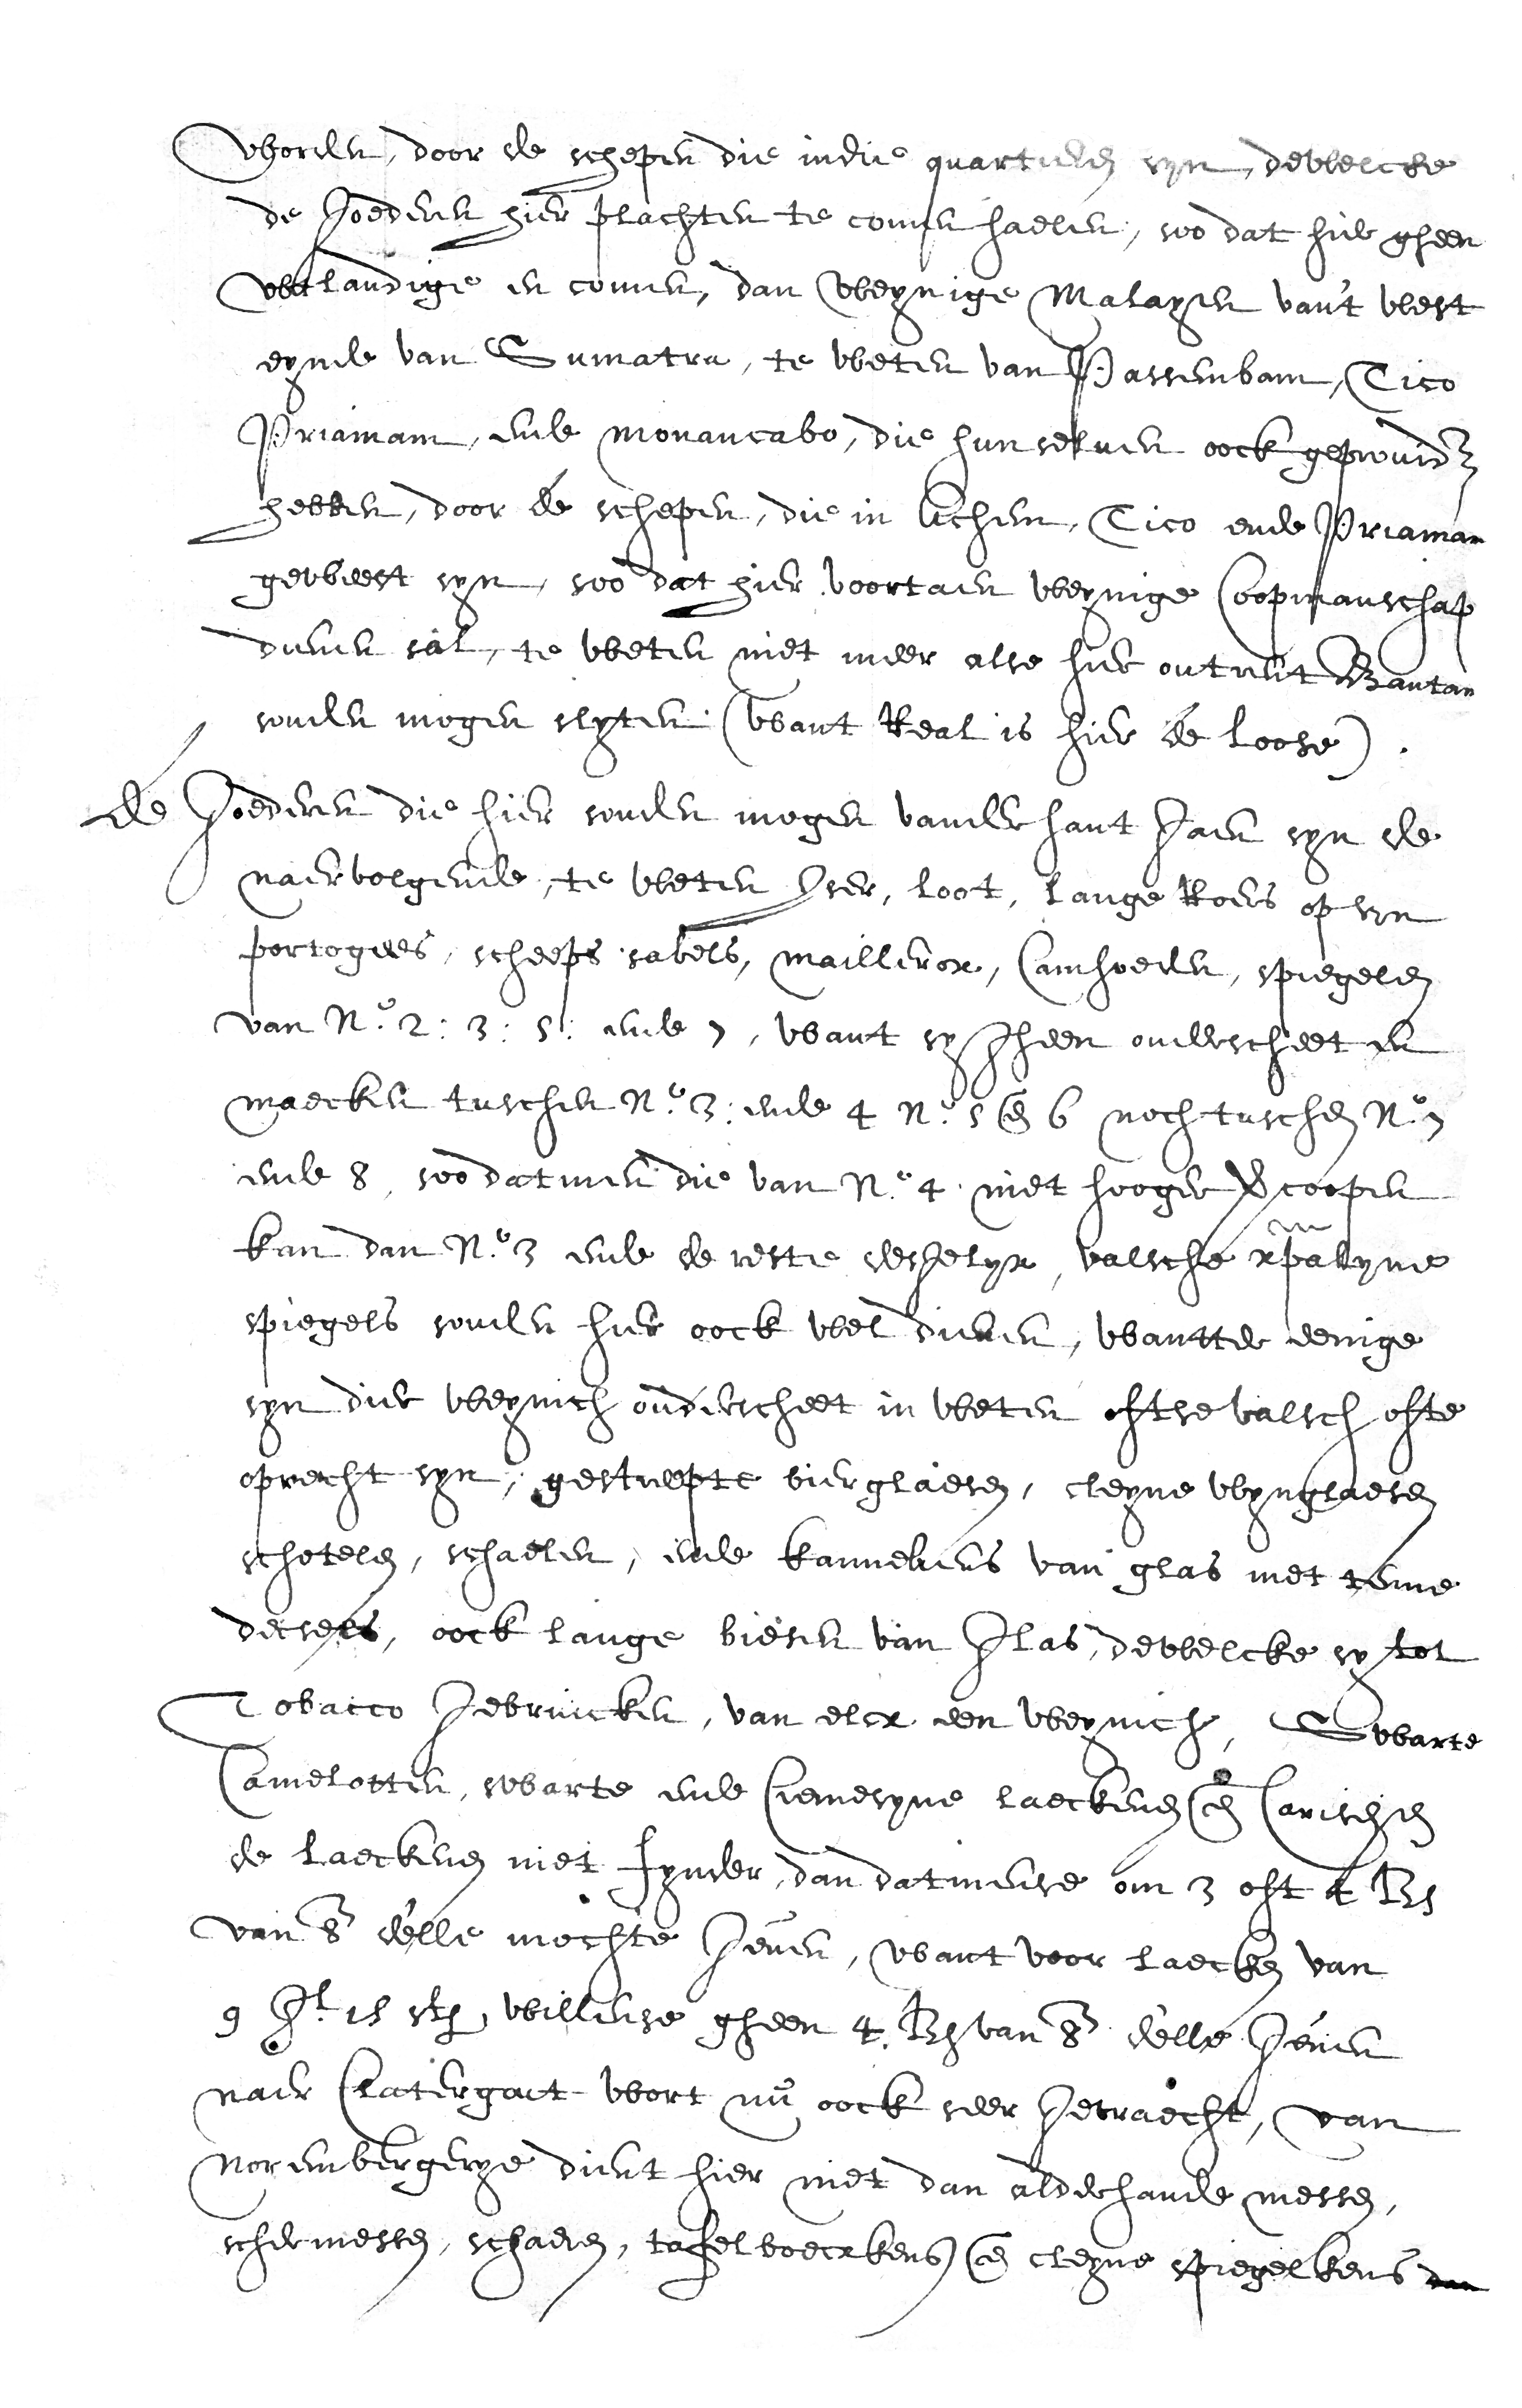 worden, door de schepen die in die quartieren syn, dewelcke
de goederen hier plachten te comen haelen, soo dat hier gheen
uutlandige en comen, dan weynige Malayen van't west
eynde van Sumatra, te weten van Passemban, Tico
Priaman, ende Monancabo, die hun selven oock geprovideert
hebben, door de schepen, die in Achem, Tico ende Priaman
geweest syn, soo dat hier voortaen weynige Coopmanschap
dienen sal, te weten niet meer alse hier ontrent Bantam
souden mogen slyten (want Real is hier de loose).
de goederen die hier souden mogen vander hant gaen syn de
naervolgende, te weten yser, loot, lange Roers op syn
portogees, scheeps sabels, maillerox, Camhoeden, spiegelen
van No. 2: 3: 5: ende 7, want sy gheen onderscheet en
maecken tuschen No. 3: ende 4 No. 5 en 6 noch tuschen No. 7
ende 8, soo datmen die van No. 4 niet hooger vercoopen
kan dan No. 3 ende de reste desgelyx, valsche xpalyne
spiegels souden hier oock wel dienen, wantter eenige
syn die weynich onderscheet in weten ofse valsch ofte
oprecht syn, gestreepte bierglaesen, cleyne wynglaesen
schotelen, schaelen, ende kannekens van glas met tenne
decsels, oock lange biesen van glas, dewelcke sy tot
Tobacco gebruicken, van elcx een weynich, Swarte
Camelotten, swarte ende Cremesyne laeckenen en Cariseyen
de laeckenen niet fynder, dan datmense om 3 oft 4 Rs
van 8en d'elle mochte geven, want voor laecken van
9 gl. 15 st. willense gheen 4. Rs van 8en d'elle geven
naer Clatergout wort nu oock seer gevraecht, van
Norembergerye dient hier niet dan alderhande messen,
scheermessen, schaeren, tafelboecxkens en cleyne spiegelkens